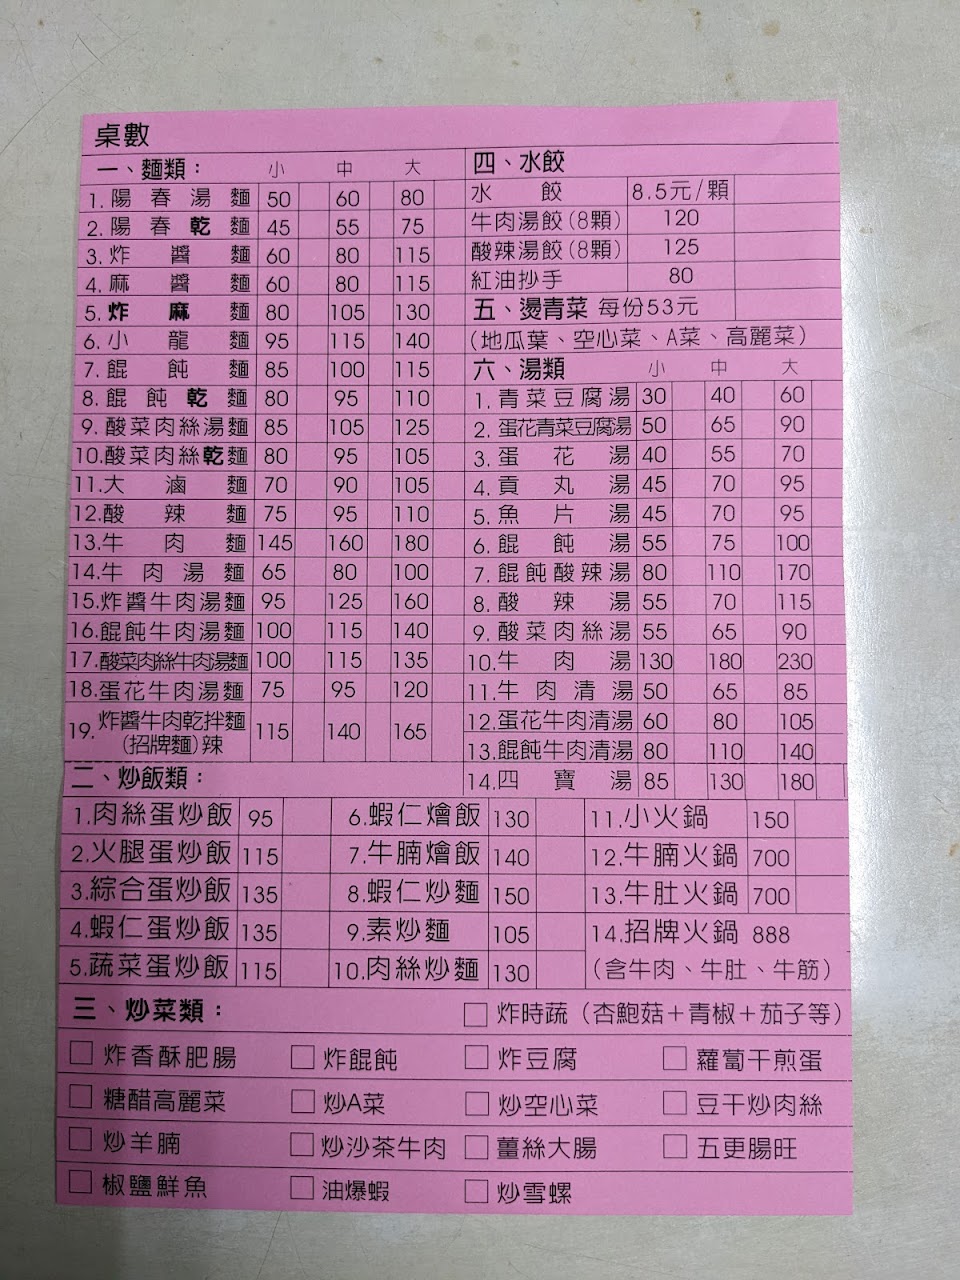 桌數
一、麵類： 小 中 大
1.陽春湯麵 50 60 80
2.陽春乾麵 45 55 75
3.炸醬麵 60 80 115
4.麻醬麵 60 80 115
5.炸麻麵 80 105 130
6.小龍麵 95 115 140
7.餛飩麵 85 100 115
8.餛飩乾麵 80 95 110
9.酸菜肉絲湯麵 85 105 125
10.酸菜肉絲乾麵 80 95 105
11.大滷麵 70 90 105
12.酸辣麵 75 95 110
13.牛肉麵 145 160 180
14.牛肉湯麵 65 80 100
15.炸醬牛肉湯麵 95 125 160
16.餛飩牛肉湯麵 100 115 140
17.酸菜肉絲牛肉湯麵 100 115 135
18.蛋花牛肉湯麵 75 95 120
19.炸醬牛肉乾拌麵 115 140 165
(招牌麵)辣
四、水餃
水餃 8.5元/顆
牛肉湯餃(8顆) 120
酸辣湯餃(8顆) 125
紅油抄手 80
五、燙青菜 每份53元
(地瓜葉、空心菜、A菜、高麗菜)
六、湯類 小 中 大
1.青菜豆腐湯 30 40 60
2.蛋花青菜豆腐湯 50 65 90
3.蛋花湯 40 55 70
4.貢丸湯 45 70 95
5.魚片湯 45 70 95
6.餛飩湯 55 75 100
7.餛飩酸辣湯 80 110 170
8.酸辣湯 55 70 115
9.酸菜肉絲湯 55 65 90
10.牛肉湯 130 180 230
11.牛肉清湯 50 65 85
12.蛋花牛肉清湯 60 80 105
13.餛飩牛肉清湯 80 110 140
14.四寶湯 85 130 180
二、炒飯類：
1.肉絲蛋炒飯 95 6.蝦仁燴飯 130 11.小火鍋 150
2.火腿蛋炒飯 115 7.牛腩燴飯 140 12.牛腩火鍋 700
3.綜合蛋炒飯 135 8.蝦仁炒麵 150 13.牛肚火鍋 700
4.蝦仁蛋炒飯 135 9.素炒麵 105 14.招牌火鍋 888
5.蔬菜蛋炒飯 115 10.肉絲炒麵 130 (含牛肉、牛肚、牛筋)
三、炒菜類： 炸時蔬（杏鮑菇＋青椒＋茄子等）
炸香酥肥腸 炸餛飩 炸豆腐 蘿蔔干煎蛋
糖醋高麗菜 炒A菜 炒空心菜 豆干炒肉絲
炒羊腩 炒沙茶牛肉 薑絲大腸 五更腸旺
椒鹽鮮魚 油爆蝦 炒雪螺